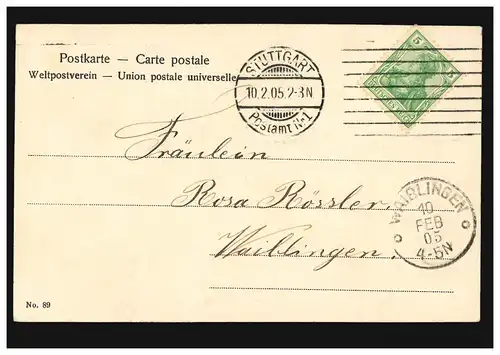 Postkarte — Carte postale
Weltpostverein — Union postale universelle
STUTTGART
10.2.05 2-3N
Postamt No1
5 5
Fräulein
Rosa Rössler,
Waiblingen.
WAIBLINGEN
10
FEB
05
4-5N
No. 89